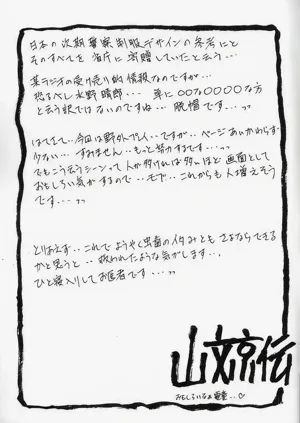 日本の次期警察制服デザインの参考にと
そのすべてを省庁に寄贈していたと云う…
某ラジオの受け売り的情報なのですが…
恐るべし水野晴郎… 単に○○な○○○○な方
と云う訳ではないのですね… 脱帽です…ッッ
はてさて…今回は野外プレイ…ですが…ページあいかわらず
少ない… すみません…もっと努力するです…ッッ
でもこう云うシーンって人が多ければ多いほど画面として
おもしろい気がするので…モブ…これからも人増えそう
です…ッッ
とりあえず…これでようやく虫歯のイタみともさよならできる
かと思うと…救われたような気がします…
ひと寝入りしてお医者です…ッッ
山文京伝
おもしろいなぁ電童…♡